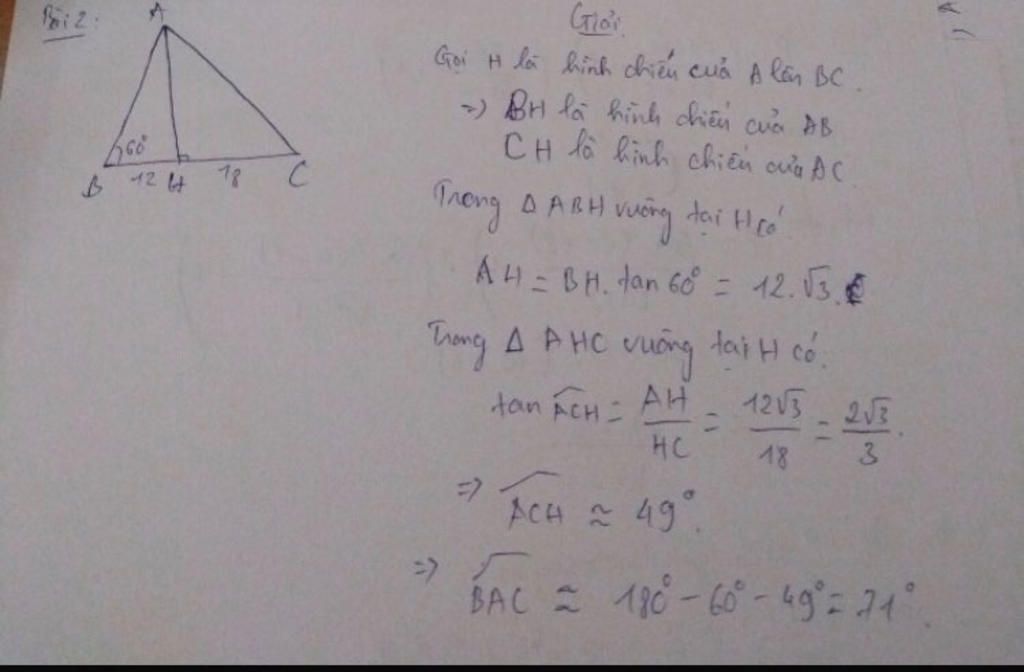 Bài 2:
A
60°
B 12 H 18 C
Giải.
Gọi H là hình chiếu của A lên BC.
=> BH là hình chiếu của AB
CH là hình chiếu của AC.
Trong Δ ABH vuông tại H có
AH = BH. tan 60° = 12.√3.
Trong Δ AHC vuông tại H có:
tan \widehat{ACH} = \frac{AH}{HC} = \frac{12√3}{18} = \frac{2√3}{3}.
=> \widehat{ACH} ≈ 49°.
=> \widehat{BAC} ≈ 180° - 60° - 49° = 71°.